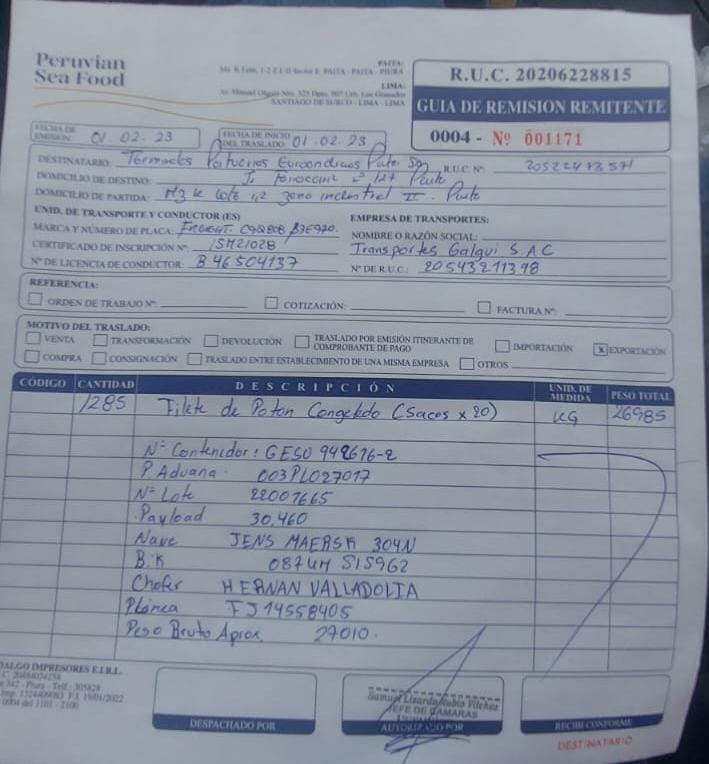 Peruvian
Sea Food
PAITA:
Mz. K Lote. 1-2 Z.I. II Sector E. PAITA - PAITA - PIURA
LIMA:
Av. Manuel Olguin Nro. 325 Dpto. 907 Urb. Los Granados
SANTIAGO DE SURCO - LIMA - LIMA
R.U.C. 20206228815
GUIA DE REMISION REMITENTE
0004 - Nº 001171
FECHA DE EMISIÓN: 01.02.23
FECHA DE INICIO DEL TRASLADO: 01.02.23
DESTINATARIO: Terminales Portuarios Euroandinos Paita SA R.U.C. Nº: 20522473571
DOMICILIO DE DESTINO: Jr Ferrocarril nº 127 Paita
DOMICILIO DE PARTIDA: Mz K Lote 1,2 zona industrial II - Paita
UNID. DE TRANSPORTE Y CONDUCTOR (ES)
EMPRESA DE TRANSPORTES:
MARCA Y NÚMERO DE PLACA:
NOMBRE O RAZÓN SOCIAL:
CERTIFICADO DE INSCRIPCIÓN Nº: 15M21028
Transportes Galgui S.A.C
Nº DE LICENCIA DE CONDUCTOR: B46504137
Nº DE R.U.C.: 20543211398
REFERENCIA:
ORDEN DE TRABAJO Nº:
COTIZACIÓN:
FACTURA Nº:
MOTIVO DEL TRASLADO:
VENTA TRANSFORMACIÓN DEVOLUCIÓN TRASLADO POR EMISIÓN ITINERANTE DE COMPROBANTE DE PAGO IMPORTACIÓN X EXPORTACIÓN
COMPRA CONSIGNACIÓN TRASLADO ENTRE ESTABLECIMIENTO DE UNA MISMA EMPRESA OTROS
CÓDIGO CANTIDAD DESCRIPCIÓN UNID. DE MEDIDA PESO TOTAL
1285 Filete de Poton Congelado (Sacos x 20) KG 26985
Nº Contenedor: GESU 942616-2
P. Aduana. 003PL027017
Nº Lote 22001665
Payload 30.460
Nave JENS MAERSK 304N
B.K 087UH S15962
Chofer HERNAN VALLADOLIA
Plánca FJ14558405
Peso Bruto Aprox. 27010.
HIDALGO IMPRESORES E.I.R.L.
342 - Piura - Telf.: 305828
0004 del 1101 - 2100
DESPACHADO POR
Samuel Lizardo Rubio Vilchez
JEFE DE CAMARAS
AUTORIZADO POR
RECIBI CONFORME
DESTINATARIO